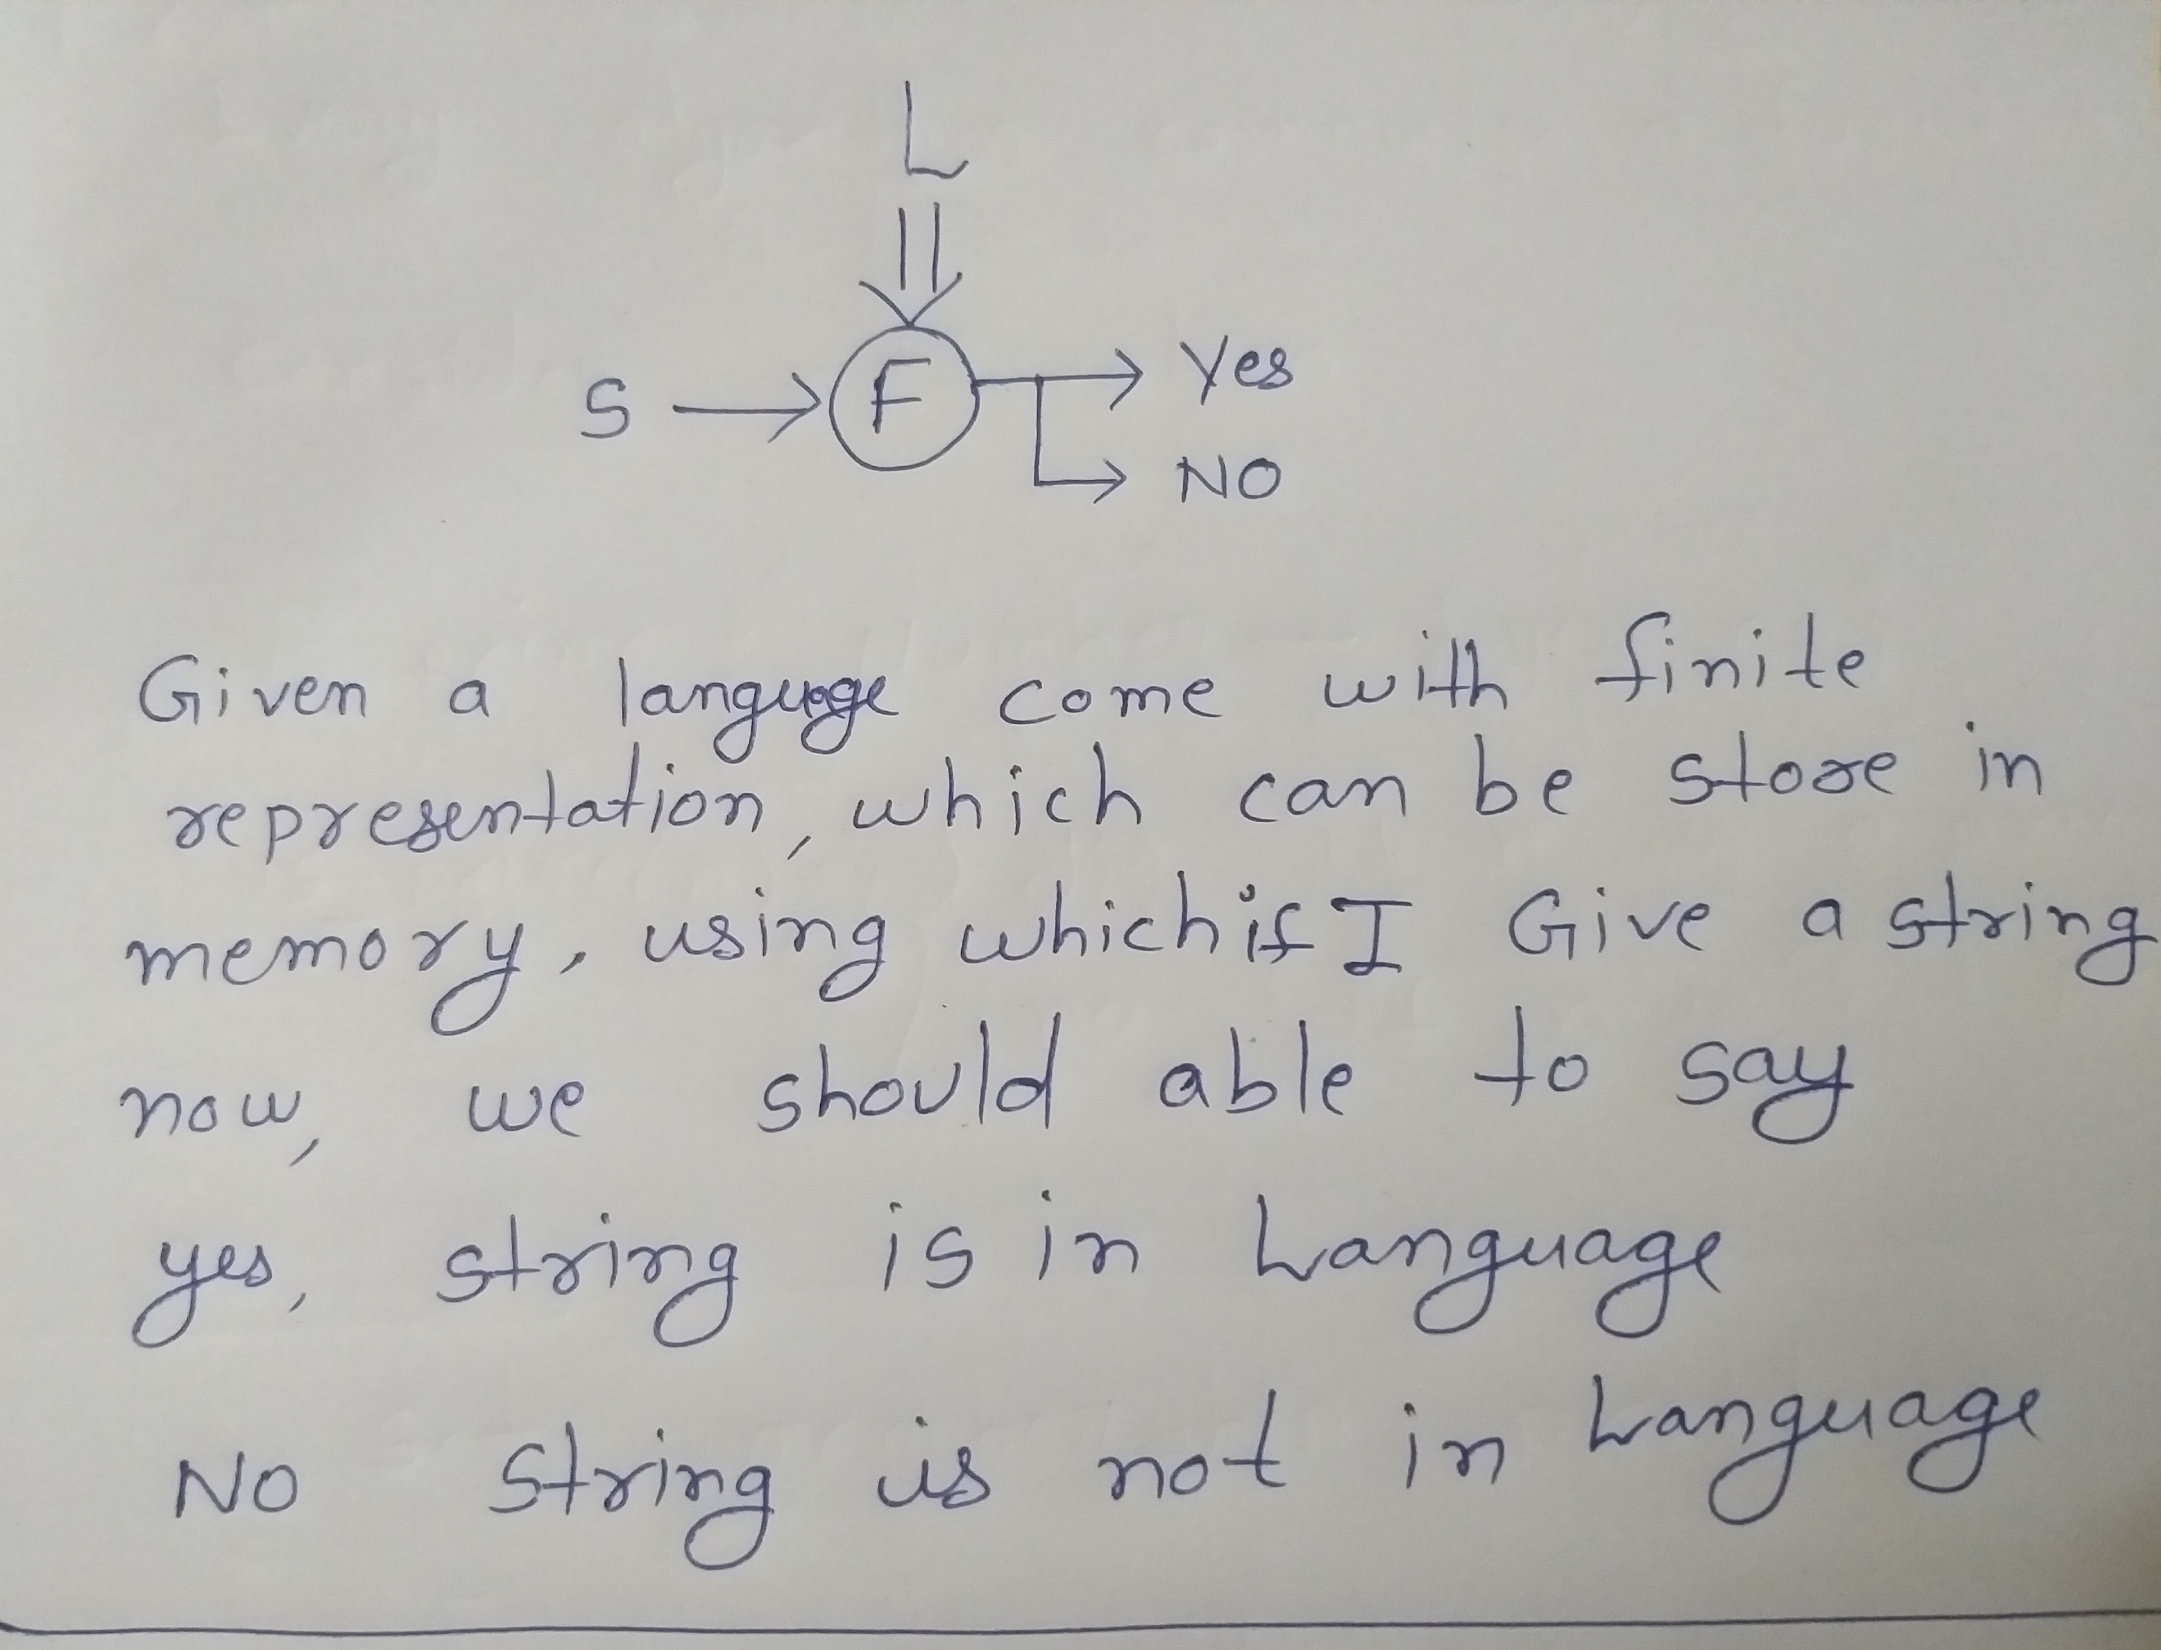 L
S F Yes
NO
Given a language come with finite
representation, which can be store in
memory, using which if I Give a string
now, we should able to say
yes, string is in Language
NO string is not in Language